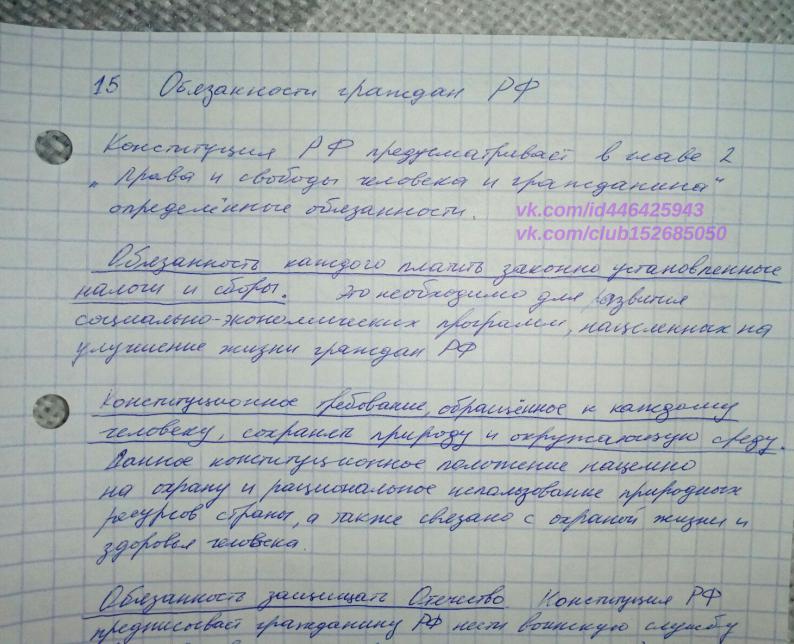 15 Обязанности граждан РФ
Конституция РФ предусматривает в главе 2
„Права и свободы человека и гражданина“
определённые обязанности.
vk.com/id446425943
vk.com/club152685050
Обязанность каждого платить законно установленные
налоги и сборы. Это необходимо для развития
социально-экономических программ, нацеленных на
улучшение жизни граждан РФ
Конституционное требование, обращённое к каждому
человеку, сохранять природу и окружающую среду.
Данное конституционное положение нацелено
на охрану и рациональное использование природных
ресурсов страны, а также связано с охраной жизни и
здоровья человека.
Обязанность защищать Отечество Конституция РФ
предписывает гражданину РФ нести воинскую службу